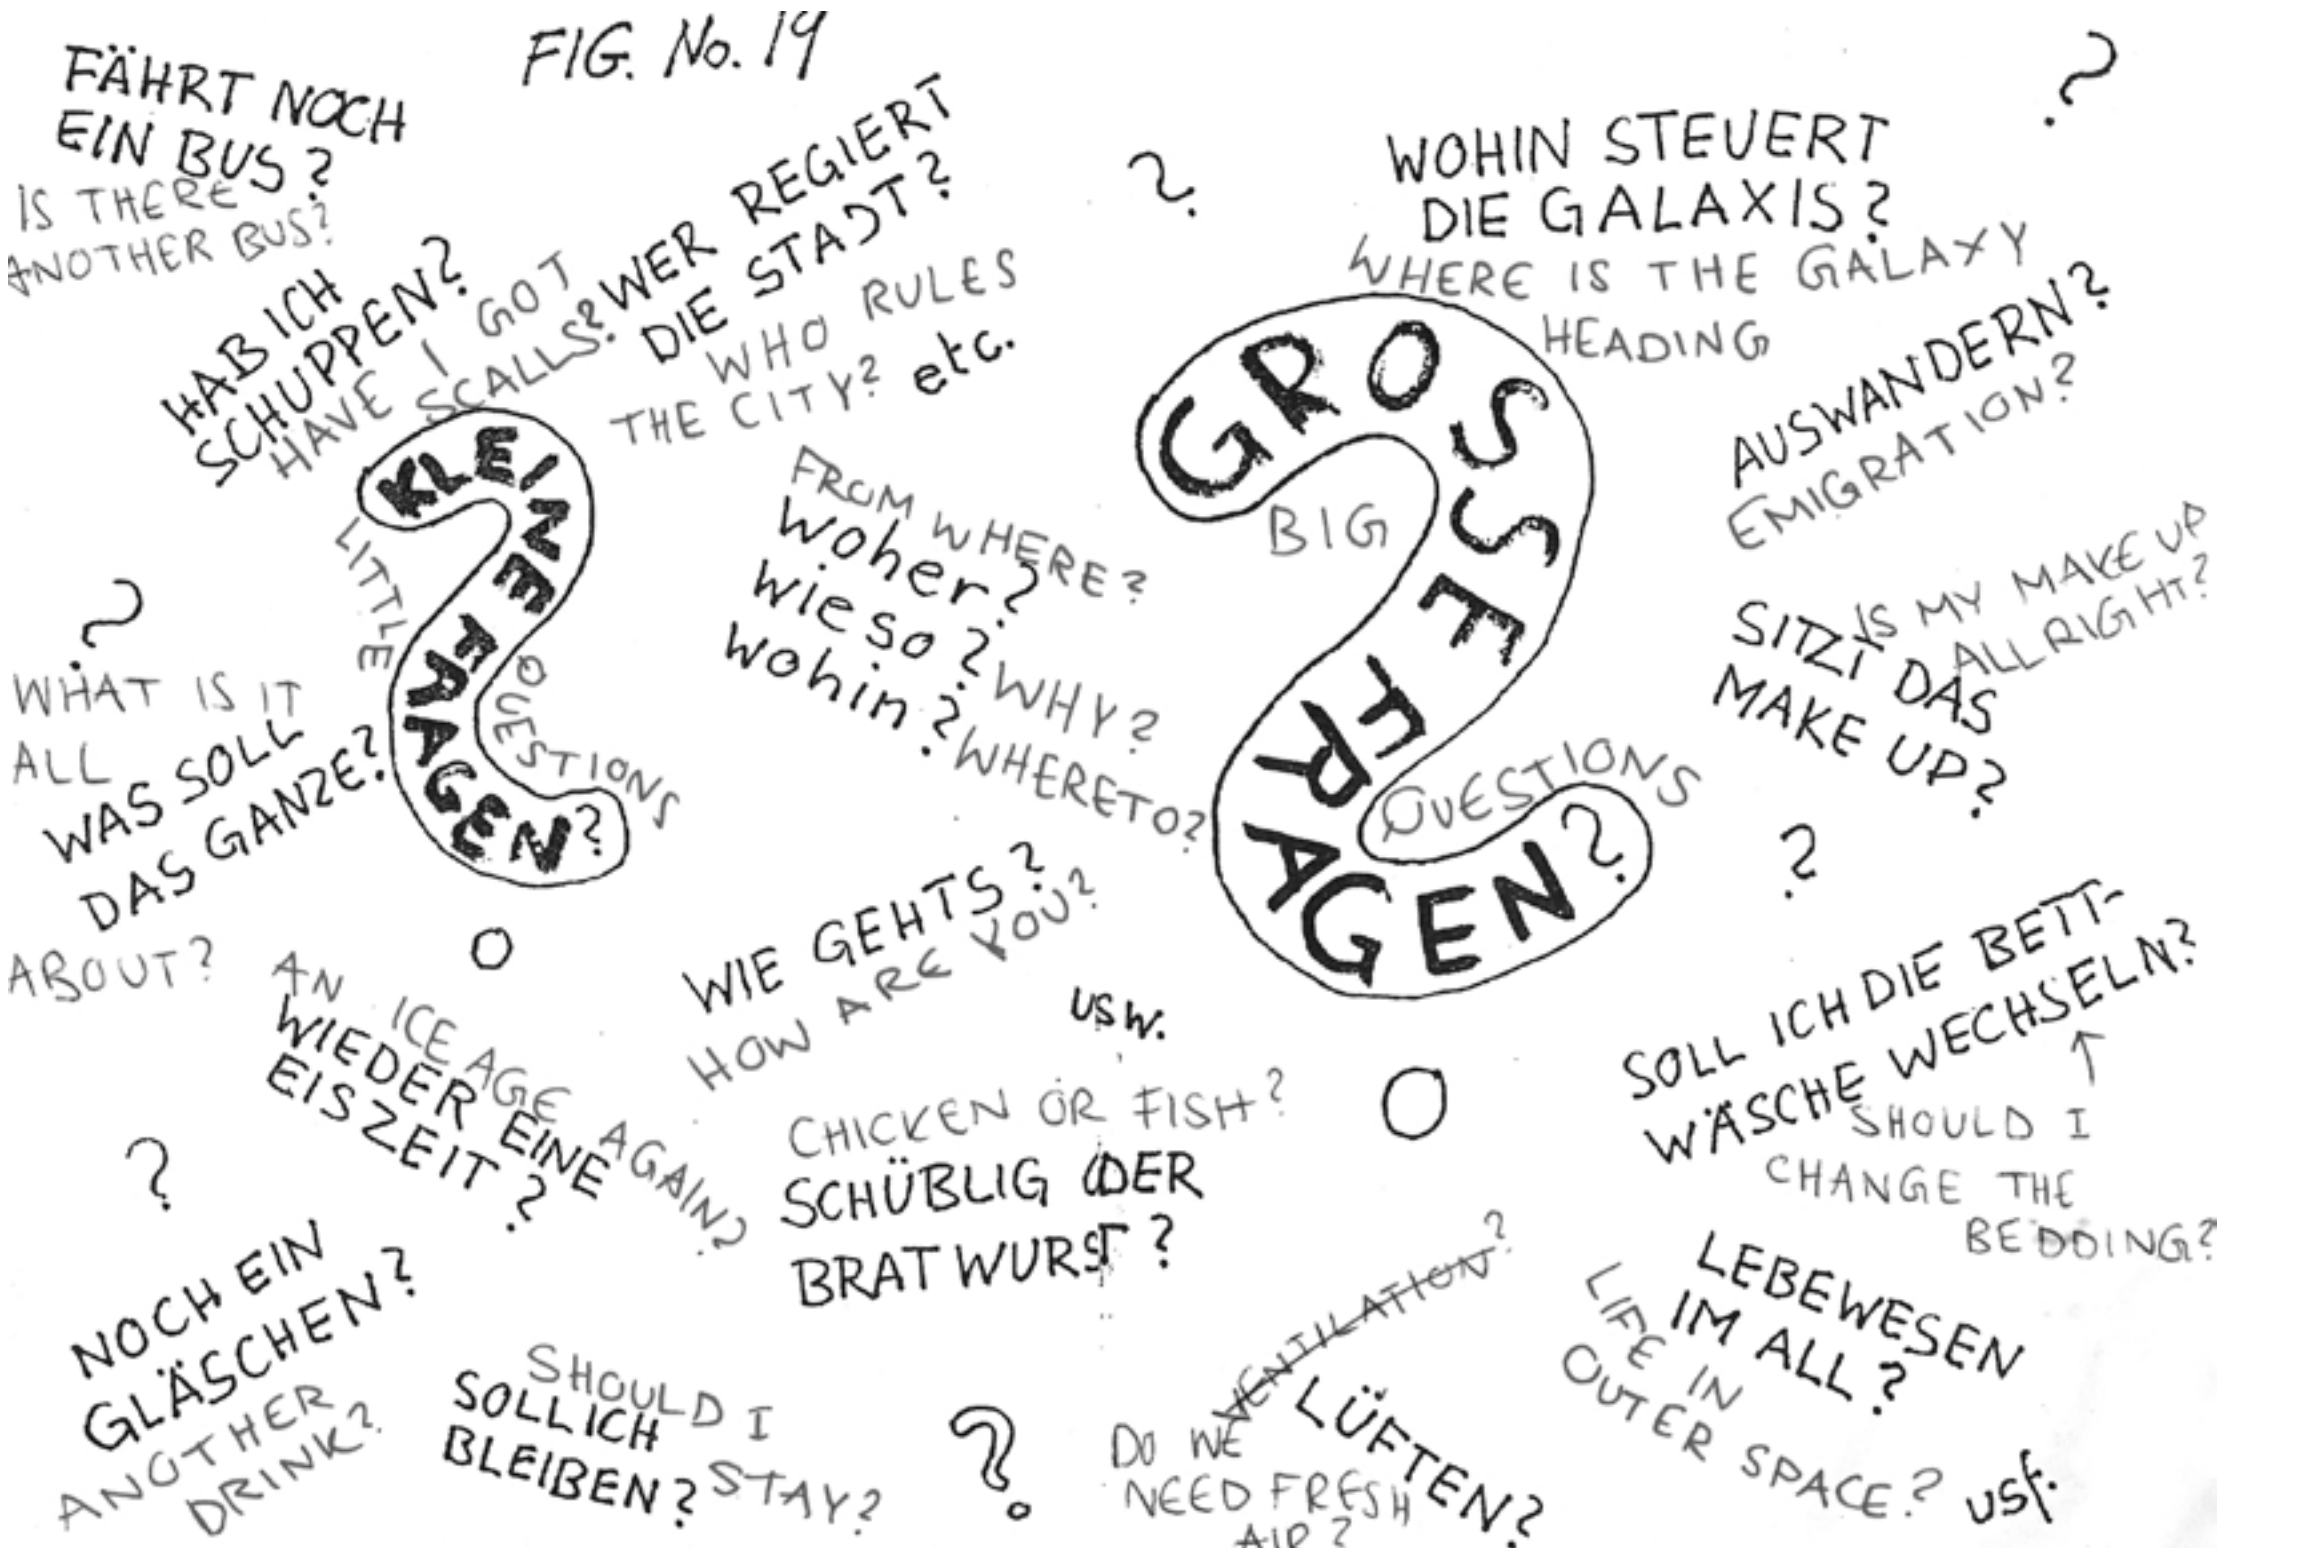 FIG. No. 19
FÄHRT NOCH
EIN BUS?
IS THERE
ANOTHER BUS?
HAB ICH
SCHUPPEN?
HAVE I GOT
SCALLS?
WER REGIERT
DIE STADT?
WHO RULES
THE CITY?
etc.
?
WOHIN STEUERT
DIE GALAXIS?
WHERE IS THE GALAXY
HEADING
?
AUSWANDERN?
EMIGRATION?
KLEINE FRAGEN?
LITTLE
QUESTIONS
FROM WHERE?
woher?
wieso?
wohin?
WHY?
WHERETO?
GROSSE FRAGEN?
BIG
QUESTIONS
IS MY MAKE UP
ALLRIGHT?
SITZT DAS
MAKE UP?
?
?
WHAT IS IT
ALL
WAS SOLL
DAS GANZE?
ABOUT?
WIE GEHTS?
HOW ARE YOU?
usw.
AN ICE AGE AGAIN?
WIEDER EINE
EISZEIT?
CHICKEN OR FISH?
SCHÜBLIG ODER
BRATWURST?
SOLL ICH DIE BETT-
WÄSCHE WECHSELN?
SHOULD I
CHANGE THE
BEDDING?
?
NOCH EIN
GLÄSCHEN?
ANOTHER
DRINK?
SHOULD I
SOLL ICH
BLEIBEN?
STAY?
?
VENTILATION?
LÜFTEN?
DO WE
NEED FRESH
AIR?
LEBEWESEN
IM ALL?
LIFE IN
OUTER SPACE?
usf.